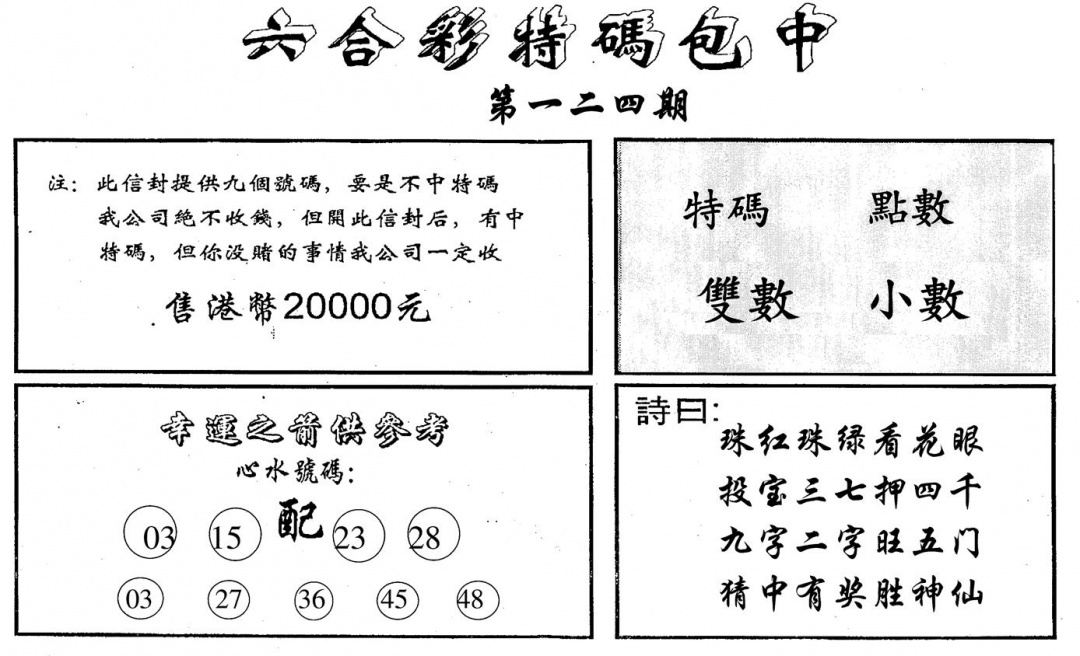 六合彩特碼包中
第一二四期
注：此信封提供九個號碼，要是不中特碼
我公司絕不收錢，但開此信封后，有中
特碼，但你没賭的事情我公司一定收
售港幣20000元
特碼 點數
雙數 小數
幸運之箭供參考
心水號碼：
03 15 配 23 28
03 27 36 45 48
詩曰：
珠红珠绿看花眼
投宝三七押四千
九字二字旺五门
猜中有奖胜神仙